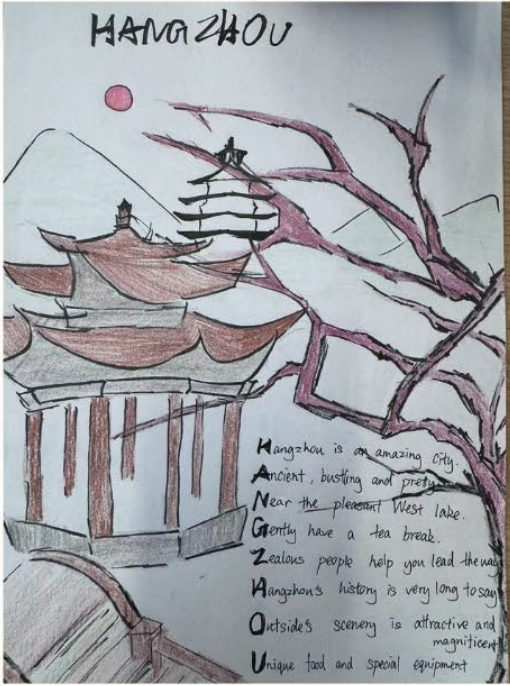 HANGZHOU
Hangzhou is an amazing city.
Ancient, bustling and pretty
Near the pleasant West lake.
Gently have a tea break.
Zealous people help you lead the way
Hangzhou's history is very long to say
Outside's scenery is attractive and
magnificent
Unique food and special equipment